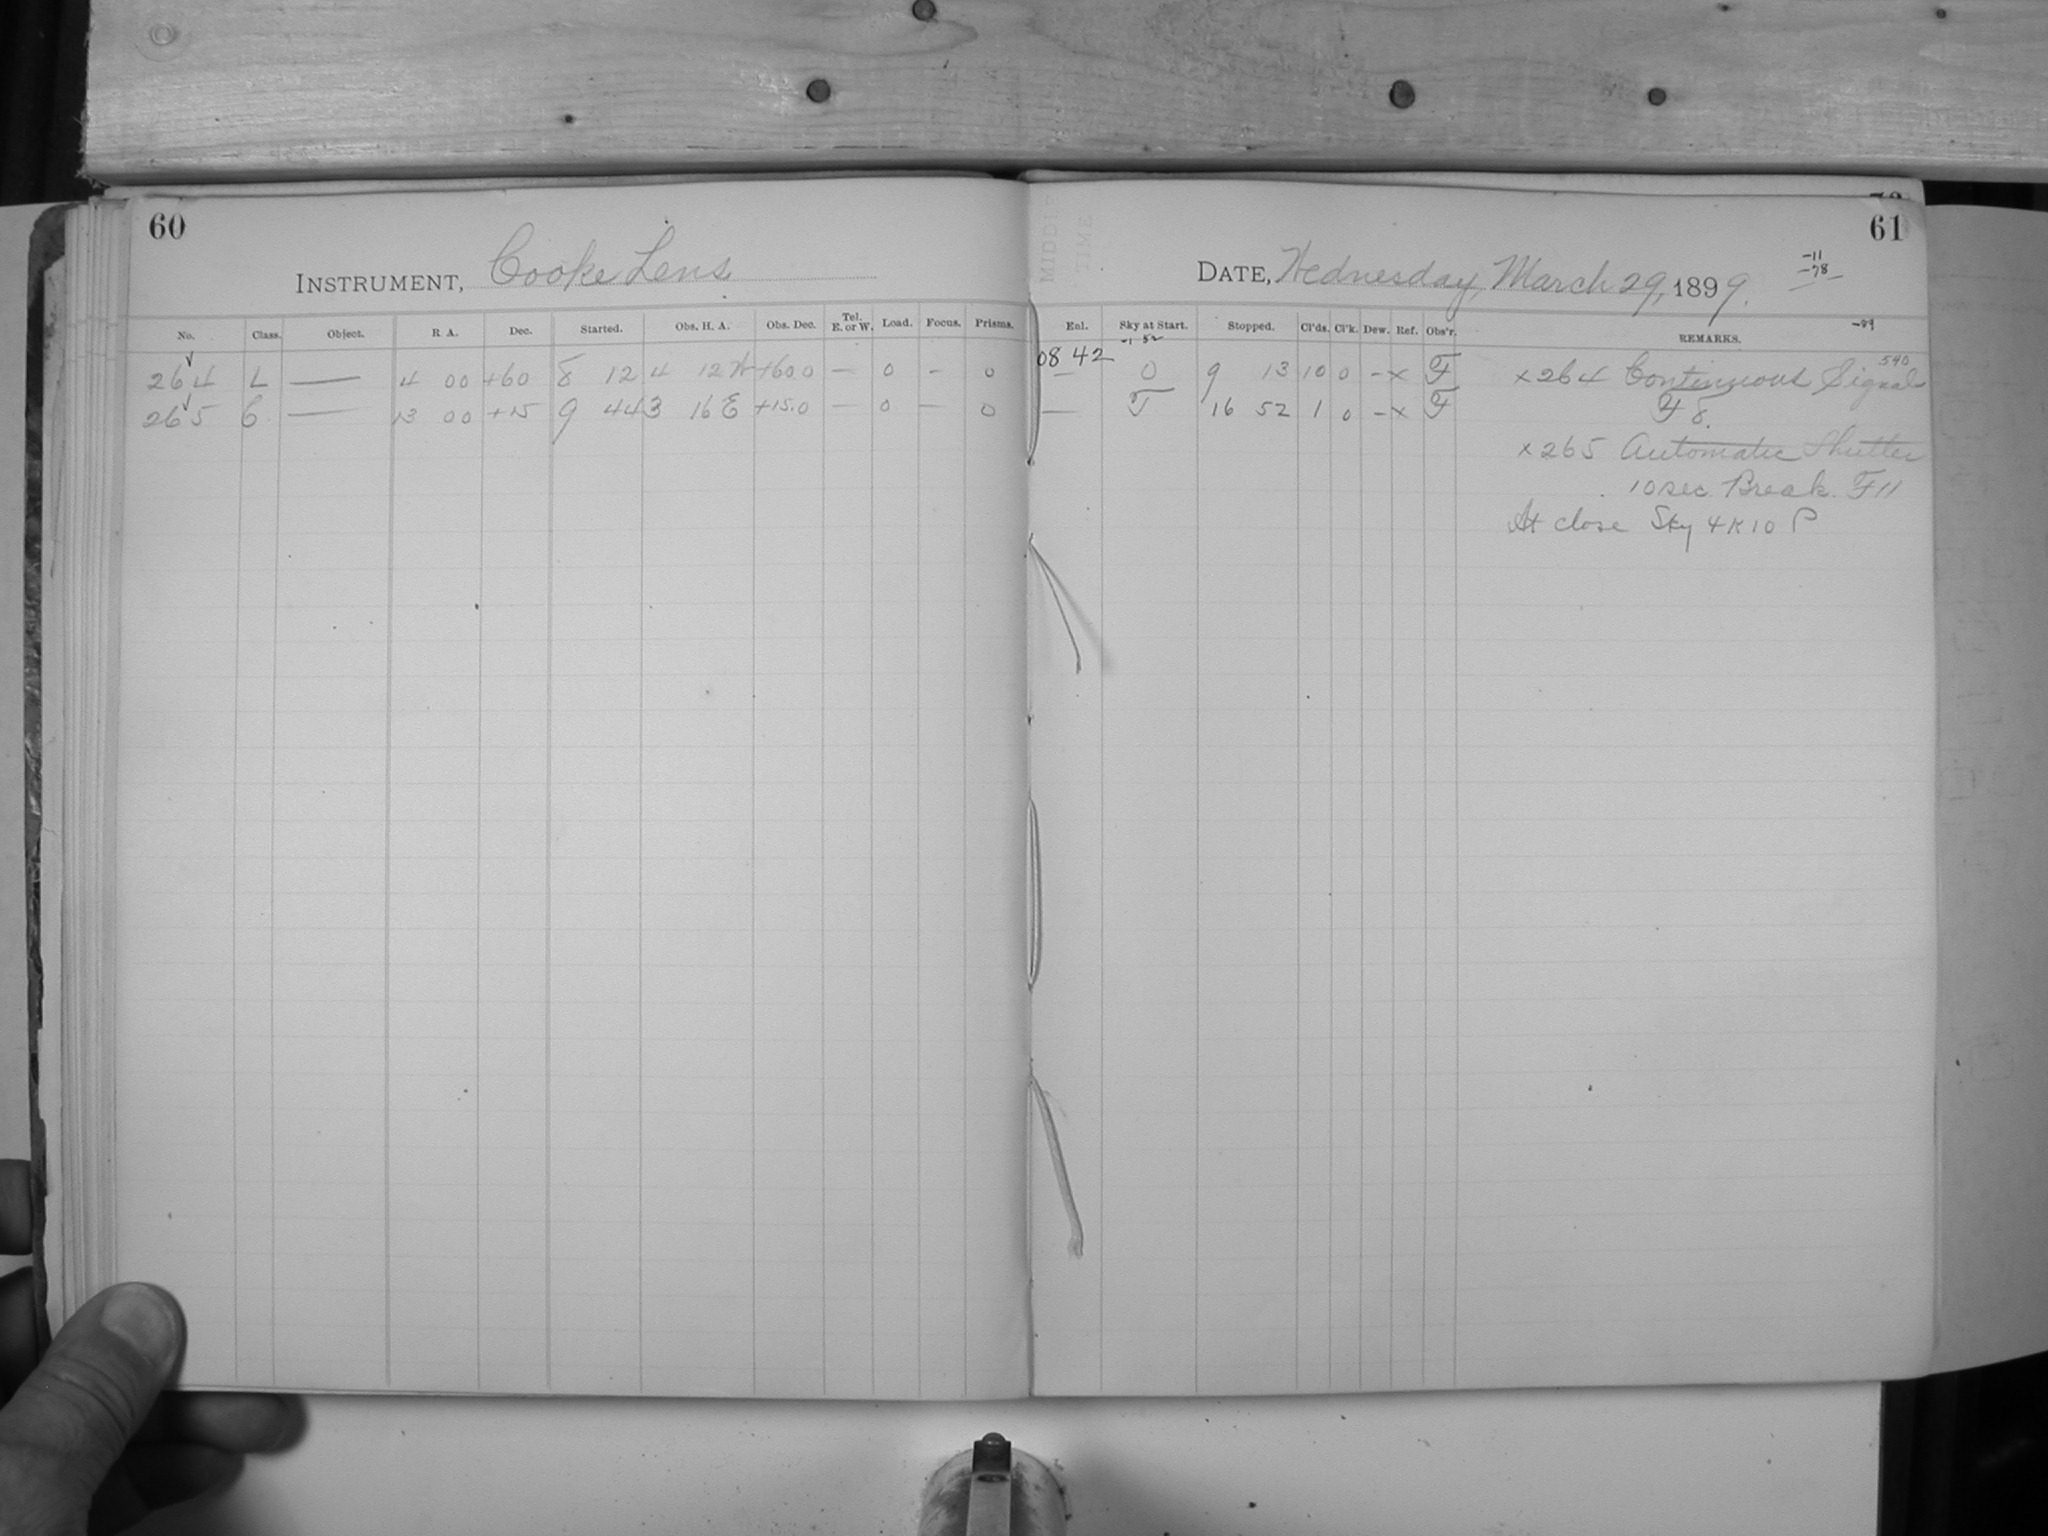 60
INSTRUMENT, Cooke Lens
No. Class. Object. R. A. Dec. Started. Obs. H. A. Obs. Dec. Tel. E. or W. Load. Focus. Prisms.
264 L — 4 00 +60 8 12 4 12 W +60.0 — 0 - 0
265 C — 13 00 +15 9 44 3 16 E +15.0 — 0 — 0
MIDDLE
TIME
61
-11
-78
DATE, Wednesday, March 29, 1899.
Enl. Sky at Start. Stopped. Cl'ds. Cl'k. Dew. Ref. Obs'r. REMARKS.
-89
-1 52
08 42
540
— 0 9 13 10 0 - x F x264 Continuous Signal
— 16 52 1 0 - x F F 8.
x265 Automatic Shutter
10 sec. Break. F 11
At close Sky 4 K 10 P